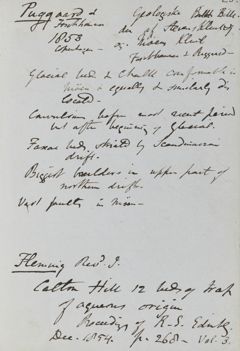 Puggaard &
Forchhammer
1853
Copenhagen
Geologiske
den af
og Möens Klint
Forchhammer & Puggaard
Glacial beds & Chalk conformable in
Möen & equally & similarly dis
located
Convulsion before most recent period
but after beginning of Glacial.
Faxoe beds striated by Scandinavian
drift.
Biggest boulders in upper part of
northern drift.
Vast faults in Möen
Fleming Revd J.
Calton Hill 12 beds of trap
of aqueous origin
Proceedings of R. S. Edinb.
Dec. 1854. p. 268 - Vol. 3.